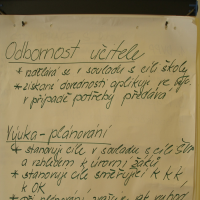 Odbornost učitele
* vzdělává se v souladu s cíli školy
* získané dovednosti aplikuje ve výuce,
v případě potřeby předává
Výuka - plánování
* stanovuje cíle v souladu s cíli ŠVP
a vzhledem k úrovni žáků
* stanovuje cíle směřující k KK
k OK
* při plánování